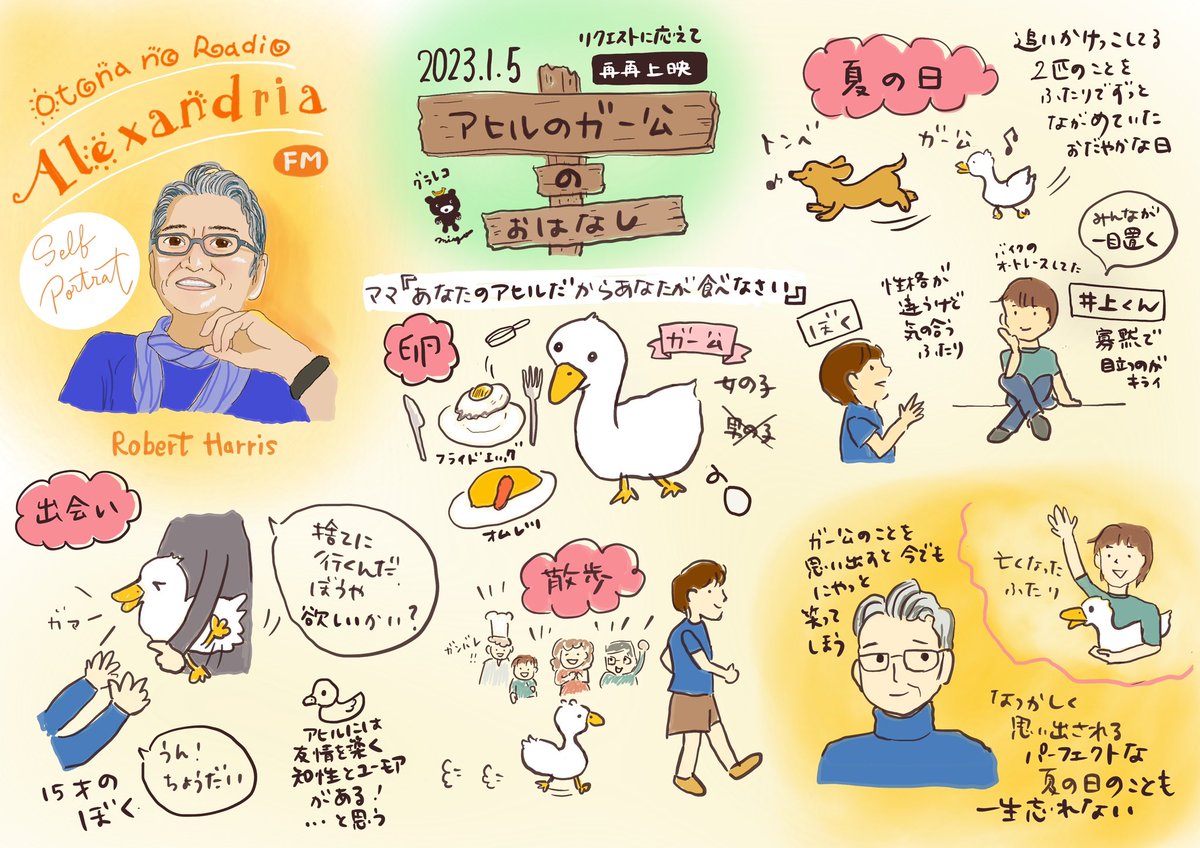 Otona no Radio
Alexandria
FM
Self
Portrait
Robert Harris
2023.1.5
リクエストに応えて
再再上映
アヒルのガー公
の
おはなし
グラレコ
出会い
ガァー
捨てに
行くんだ
ぼうや
欲しいかい?
うん!
ちょうだい
15才の
ぼく
アヒルには
友情を築く
知性とユーモア
がある!
…と思う
ママ『あなたのアヒルだからあなたが食べなさい』
卵
フライドエッグ
オムレツ
ガー公
女の子
男の子
散歩
ガンバレ!!
夏の日
追いかけっこしてる
2匹のことを
ふたりでずっと
ながめていた
おだやかな日
トンベ
ガー公
ぼく
性格が
違うけど
気の合う
ふたり
バイクの
オートレースしてた
みんなが
一目置く
井上くん
寡黙で
目立つのが
キライ
ガー公のことを
思い出すと今でも
にやっと
笑って
しまう
亡くなった
ふたり
なつかしく
思い出される
パーフェクトな
夏の日のことも
一生忘れない